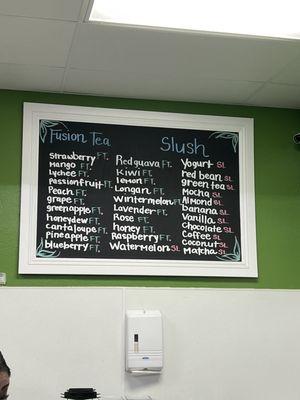 Fusion Tea
Strawberry FT.
Mango FT.
lychee FT.
Passionfruit FT.
Peach FT.
grape FT.
greenapple FT.
honeydew FT.
cantaloupe FT.
Pineapple FT.
blueberry FT.
Redguava FT.
Kiwi FT.
lemon FT.
Longan FT.
Wintermelon FT.
Lavender FT.
Rose FT.
honey FT.
Raspberry FT.
Watermelon SL
Slush
Yogurt SL
red bean SL
green tea SL
Mocha SL
Almond SL
banana SL
Vanilla SL
Chocolate SL
Coffee SL
coconut SL
Matcha SL